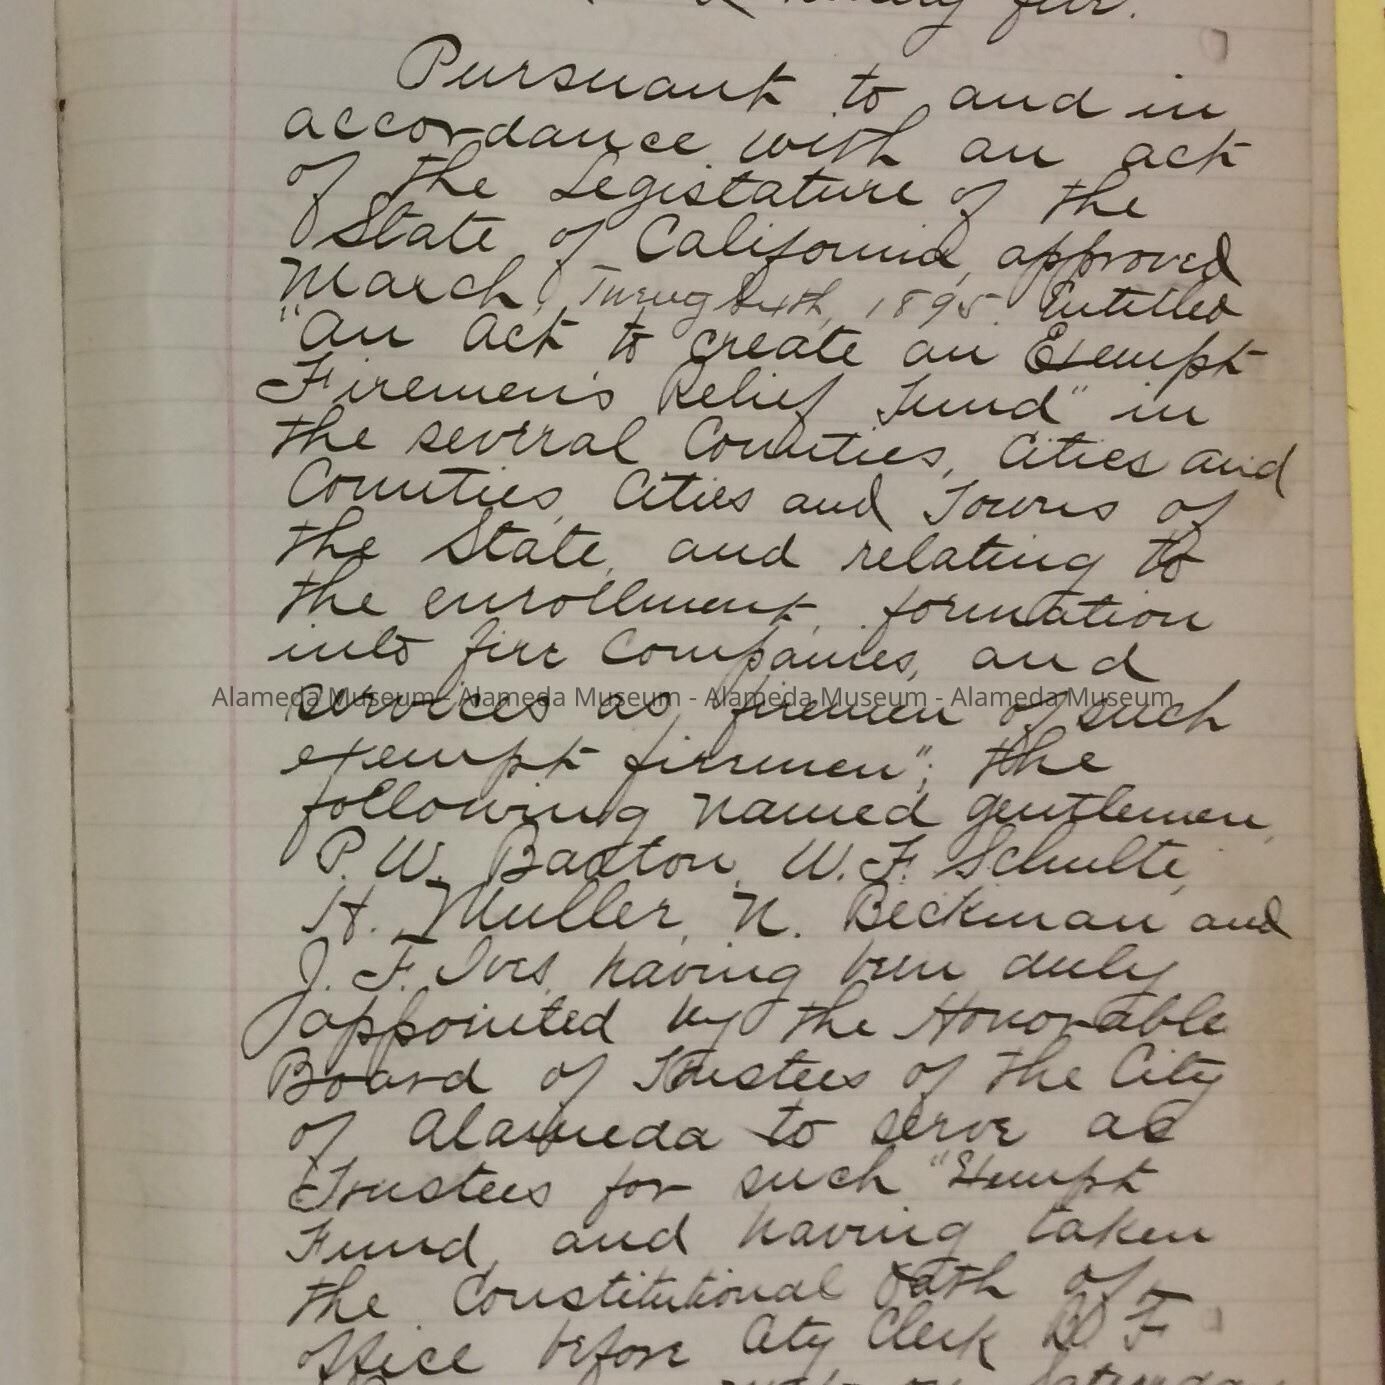 Pursuant to and in
accordance with an act
of the Legislature of the
State of California, approved
March, 1895. Entitled
"An Act to create an Exempt
Firemen's Relief Fund" in
the several Counties, Cities and
Counties, Cities and Towns of
the State, and relating to
the enrollment, formation
into fire Companies, and
services as firemen of such
exempt firemen"; the
following named gentlemen,
P. W. Baxton, W. F. Schulte,
H. Muller, N. Beckman and
J. F. Ives, having been duly
appointed by the Honorable
Board of Trustees of the City
of Alameda to serve as
Trustees for such "Exempt
Fund, and having taken
the Constitutional Oath of
office before City Clerk F
Alameda Museum - Alameda Museum - Alameda Museum - Alameda Museum